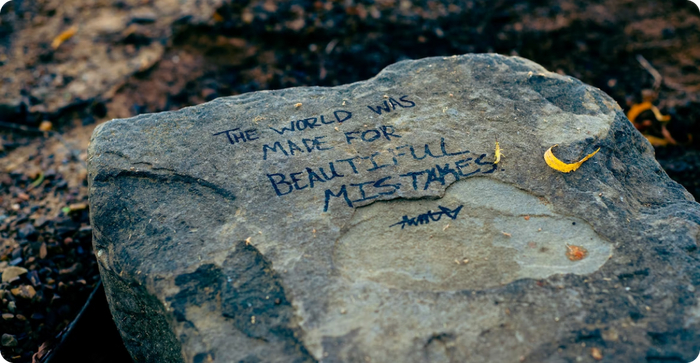 THE WORLD WAS
MADE FOR
BEAUTIFUL
MISTAKES